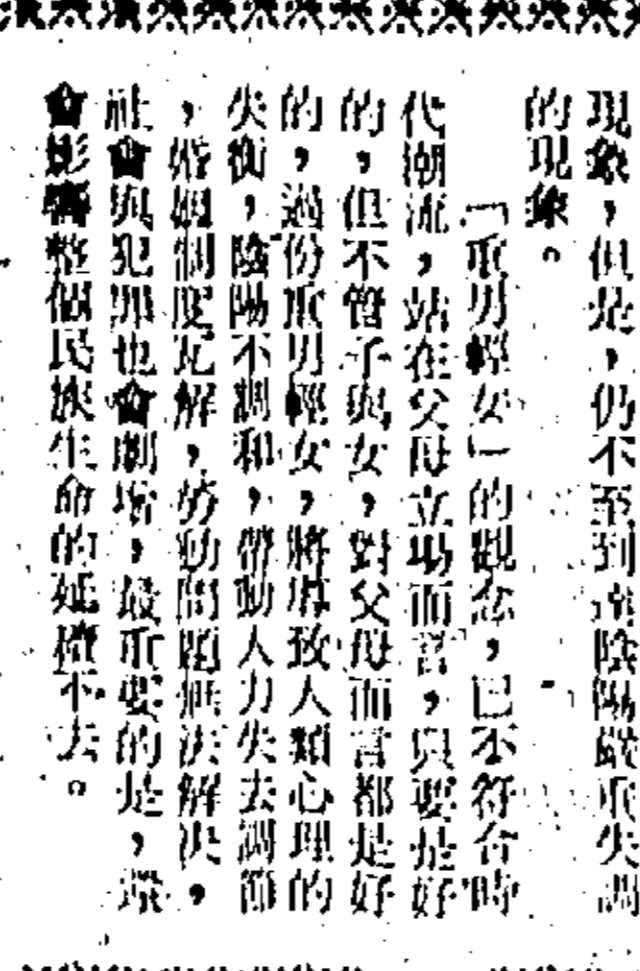 現象，但是，仍不至到達陰陽嚴重失調
的現象。
「重男輕女」的觀念，已不符合時
代潮流，站在父母立場而言，只要是好
的，但不管子與女，對父母而言都是好
的，過份重男輕女，將導致人類心理的
失衡，陰陽不調和，帶動人力失去調節
，婚姻制度瓦解，勞動問題無法解決，
社會與犯罪也會劇增，最重要的是，還
會影響整個民族生命的延續不去。